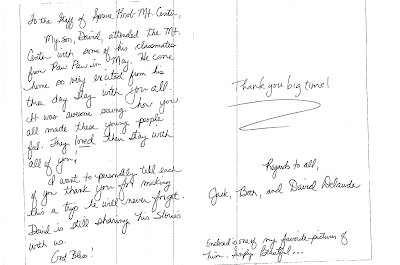 To the Staff of Spruce Knob Mt. Center,
My son, David, attended the Mt.
Center with some of his classmates
from Paw Paw in May. He come
home so very excited from his
three day stay with you all.
It was awesome seeing how you
all made these young people
feel. They loved their stay with
all of you!
I want to personally tell each
of you thank you for making
this a trip he will never forget.
David is still sharing his stories
with us.
God Bless!
Thank you big time!
Regards to all,
Jack, and David
Enclosed is one of my favorite pictures of
him. Simply Beautiful...